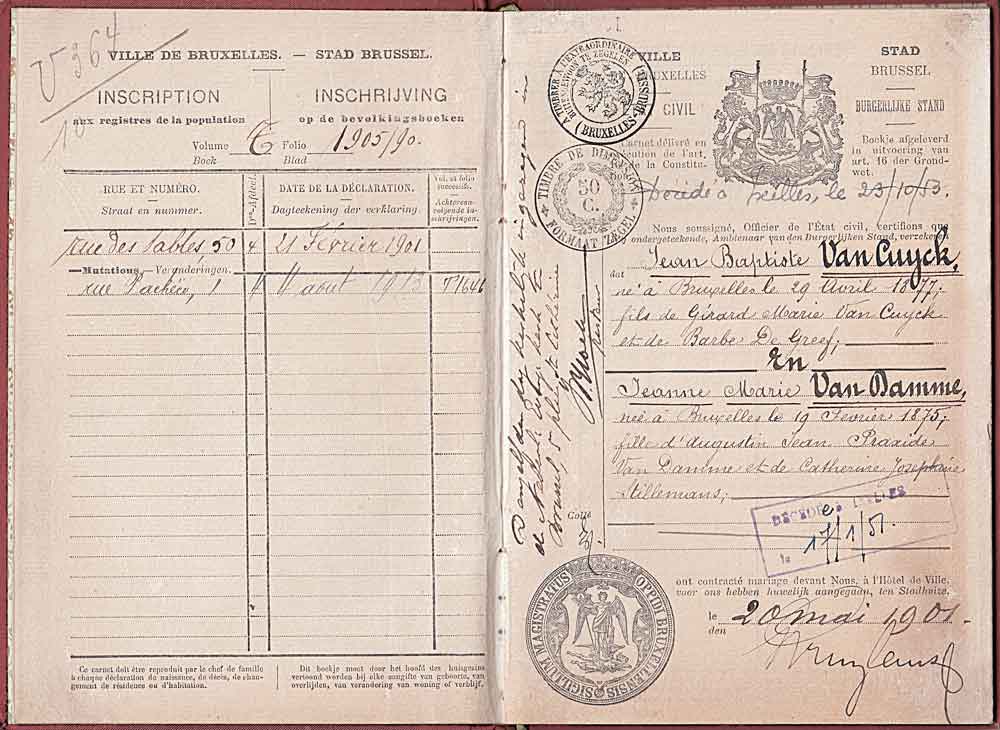 V 364
10
VILLE DE BRUXELLES. — STAD BRUSSEL.
INSCRIPTION
aux registres de la population
INSCHRIJVING
op de bevolkingsboeken
Volume E Folio 1905/90.
Boek Blad
RUE ET NUMÉRO.
Straat en nummer.
DATE DE LA DÉCLARATION.
Dagteekening der verklaring.
Vol. et folio
successifs.
Achtereen-
volgende in-
schrijvingen.
rue des Sables, 50 4 21 Février 1901
Mutations. — Veranderingen.
rue Pacheco, 1 11 11 aout 1913 T 1646
Ce carnet doit être reproduit par le chef de famille
à chaque déclaration de naissance, de décès, de chan-
gement de résidence ou d'habitation.
Dit boekje moet door het hoofd des huisgezins
vertoond worden bij elke aangifte van geboorte, van
overlijden, van verandering van woning of verblijf.
I.
A TIMBRER A L'EXTRAORDINAIRE
BUITENGEWOON TE ZEGELEN
(BRUXELLES-BRUSSEL)
TIMBRE DE DIMENSION
50
C.
FORMAAT ZEGEL
VILLE
BRUXELLES
CIVIL
Carnet délivré en
de l'art.
de la Constitu-
STAD
BRUSSEL
BURGERLIJKE STAND
Boekje afgeleverd
in uitvoering van
art. 16 der Grond-
wet.
Décédé à Ixelles, le 23/10/13
Nous soussigné, Officier de l'État civil, certifions que
ondergeteekende, Ambtenaar van den Burgerlijken Stand, verzekert
dat Jean Baptiste Van Cuyck,
né à Bruxelles le 29 Avril 1877;
fils de Girard Marie Van Cuyck
et de Barbe De Greef;
En
Jeanne Marie Van Damme,
née à Bruxelles le 19 Février 1875;
fille d'Augustin Jean Praxide
Van Damme et de Catherine Josephine
Stillemans;
DECEDEE A IXELLES
le 17/1/51.
ont contracté mariage devant Nous, à l'Hôtel de Ville,
voor ons hebben huwelijk aangegaan, ten Stadhuize,
le 20 mai 1901.
den
SIGILLUM MAGISTRATUS OPPIDI BRUXELLENSIS